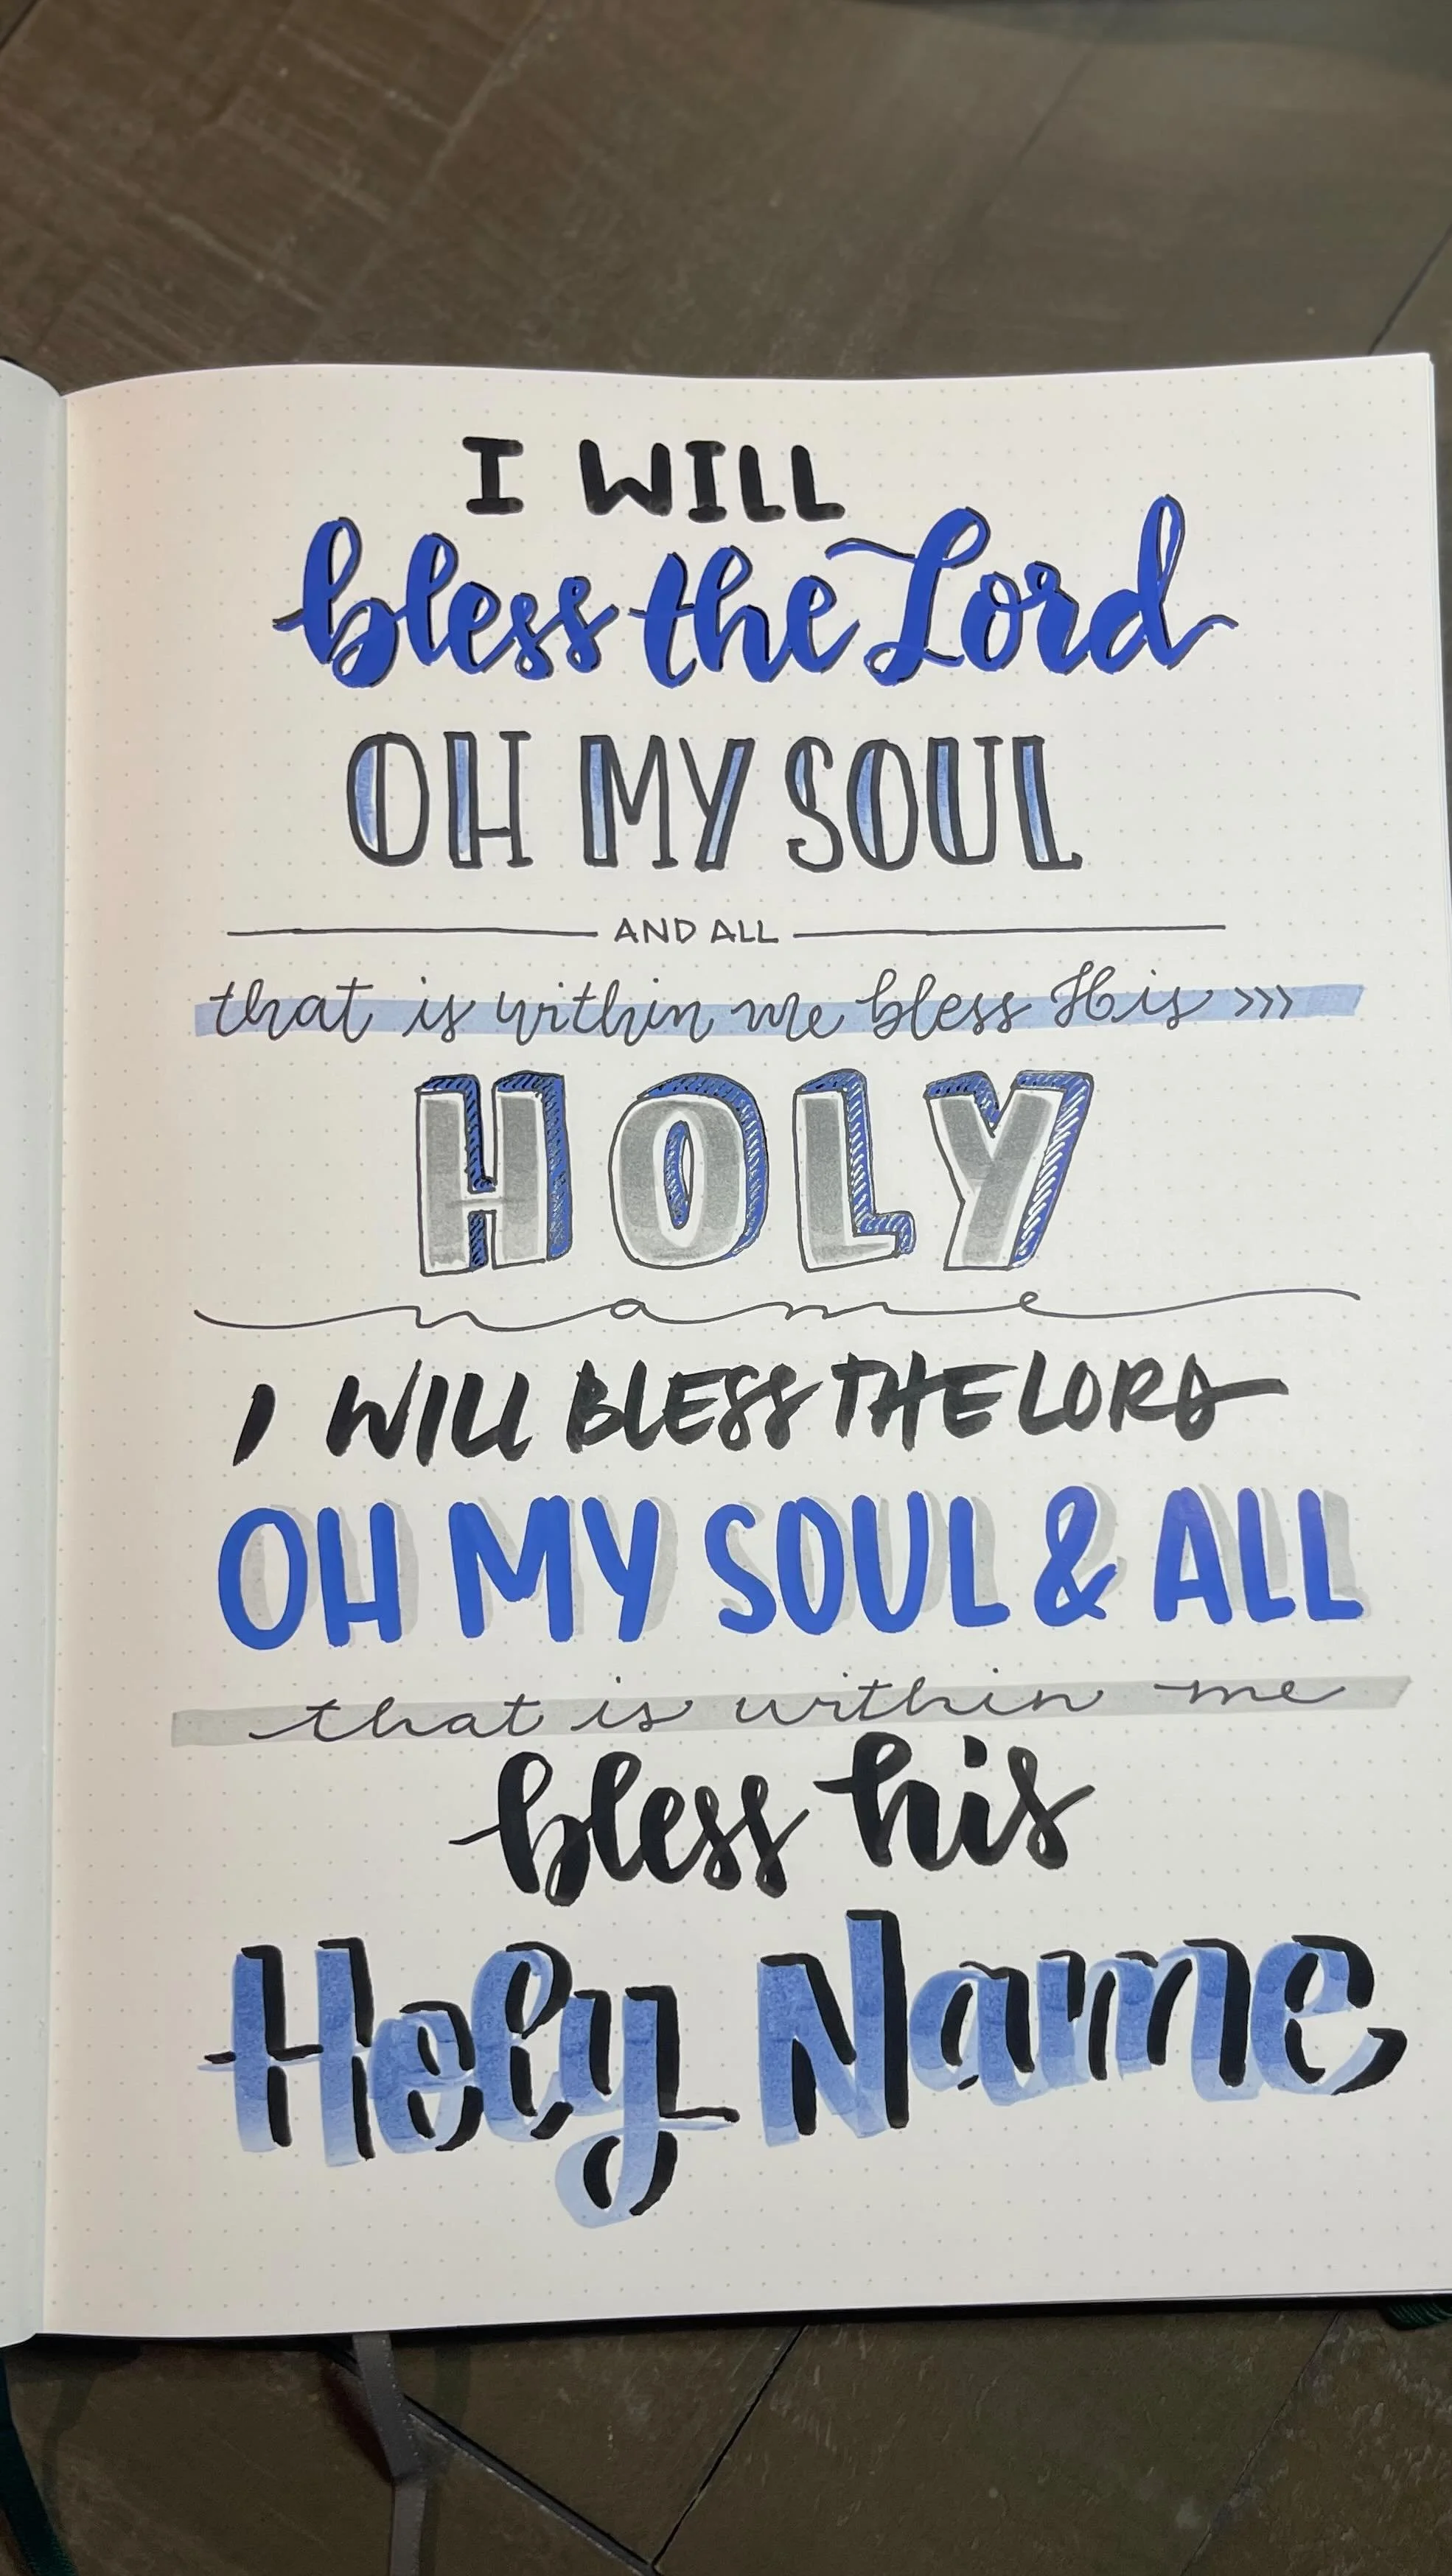 I WILL
bless the Lord
OH MY SOUL
AND ALL
that is within me bless His >>>
HOLY
name
I WILL BLESS THE LORD
OH MY SOUL & ALL
that is within me
bless his
Holy Name